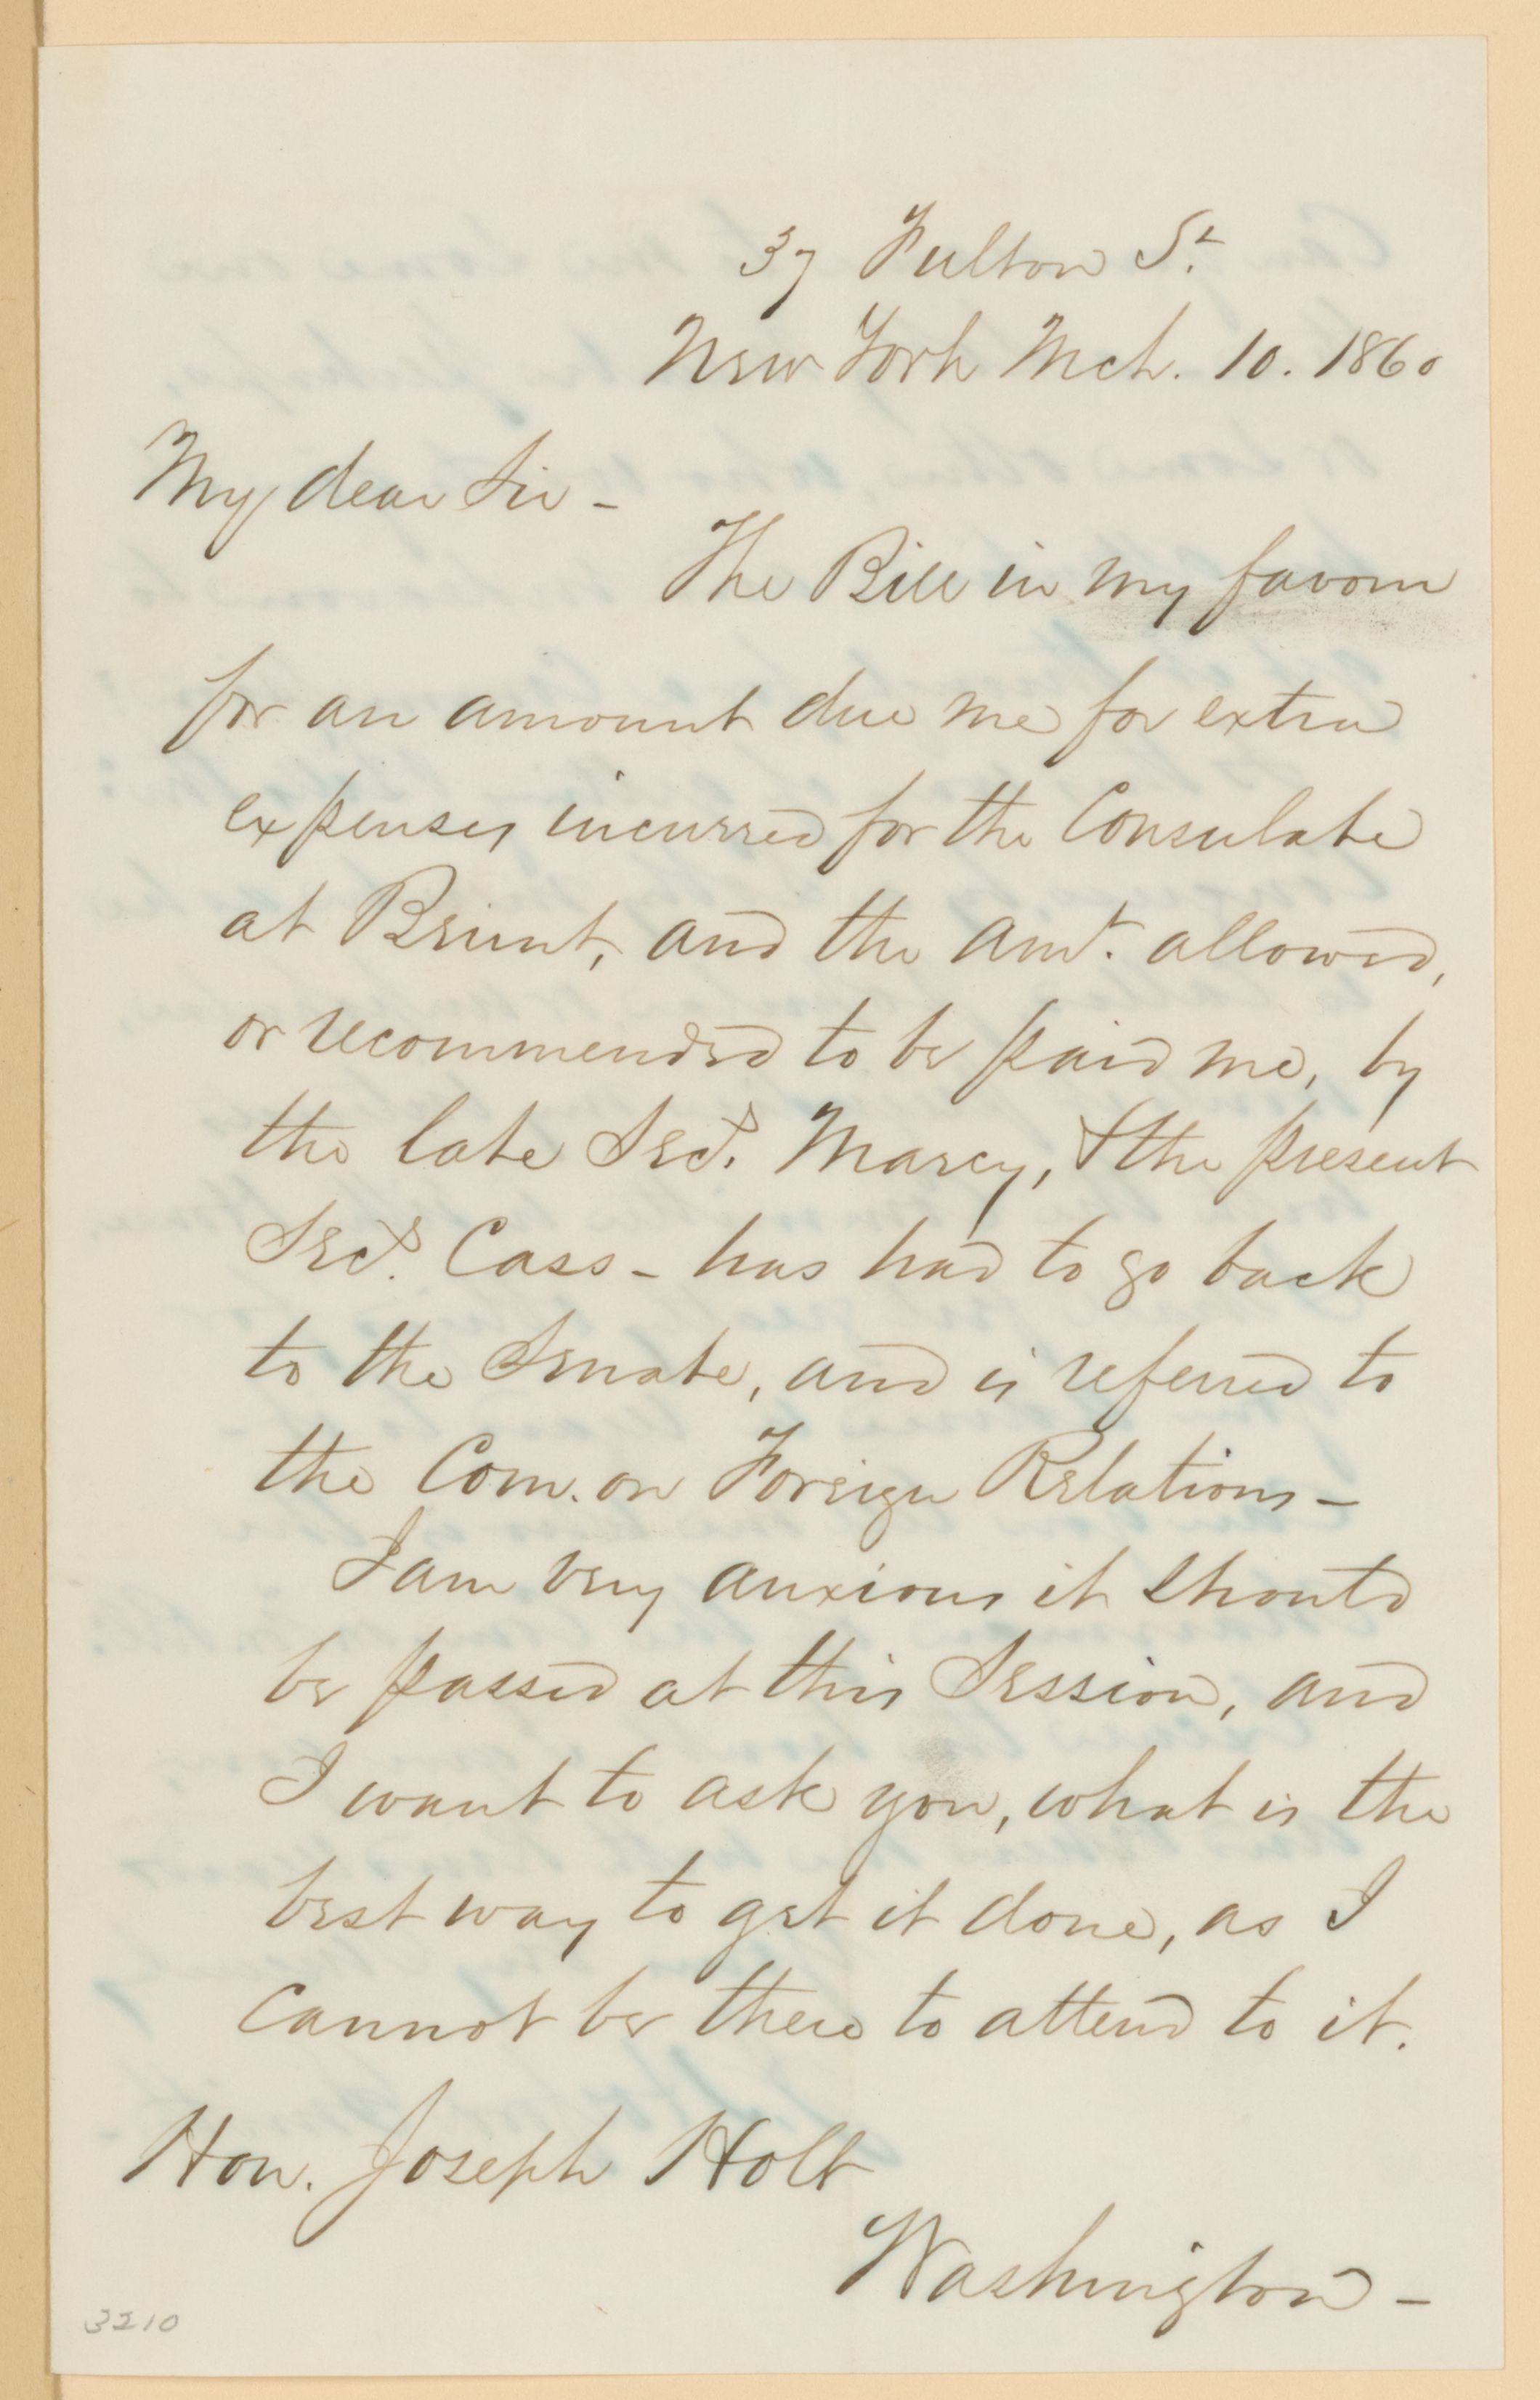 37 Fulton St.
New York Mch. 10. 1860
My dear Sir -
The Bill in my favour
for an amount due me for extra
expenses incurred for the Consulate
at Beirut, and the amt. allowed,
or recommended to be paid me, by
the late Secy. Marcy, & the present
Secy. Cass - has had to go back
to the Senate, and is referred to
the Com. on Foreign Relations -
I am very anxious it should
be passed at this Session, and
I want to ask you, what is the
best way to get it done, as I
cannot be there to attend to it.
Hon. Joseph Holt
Washington -
3210